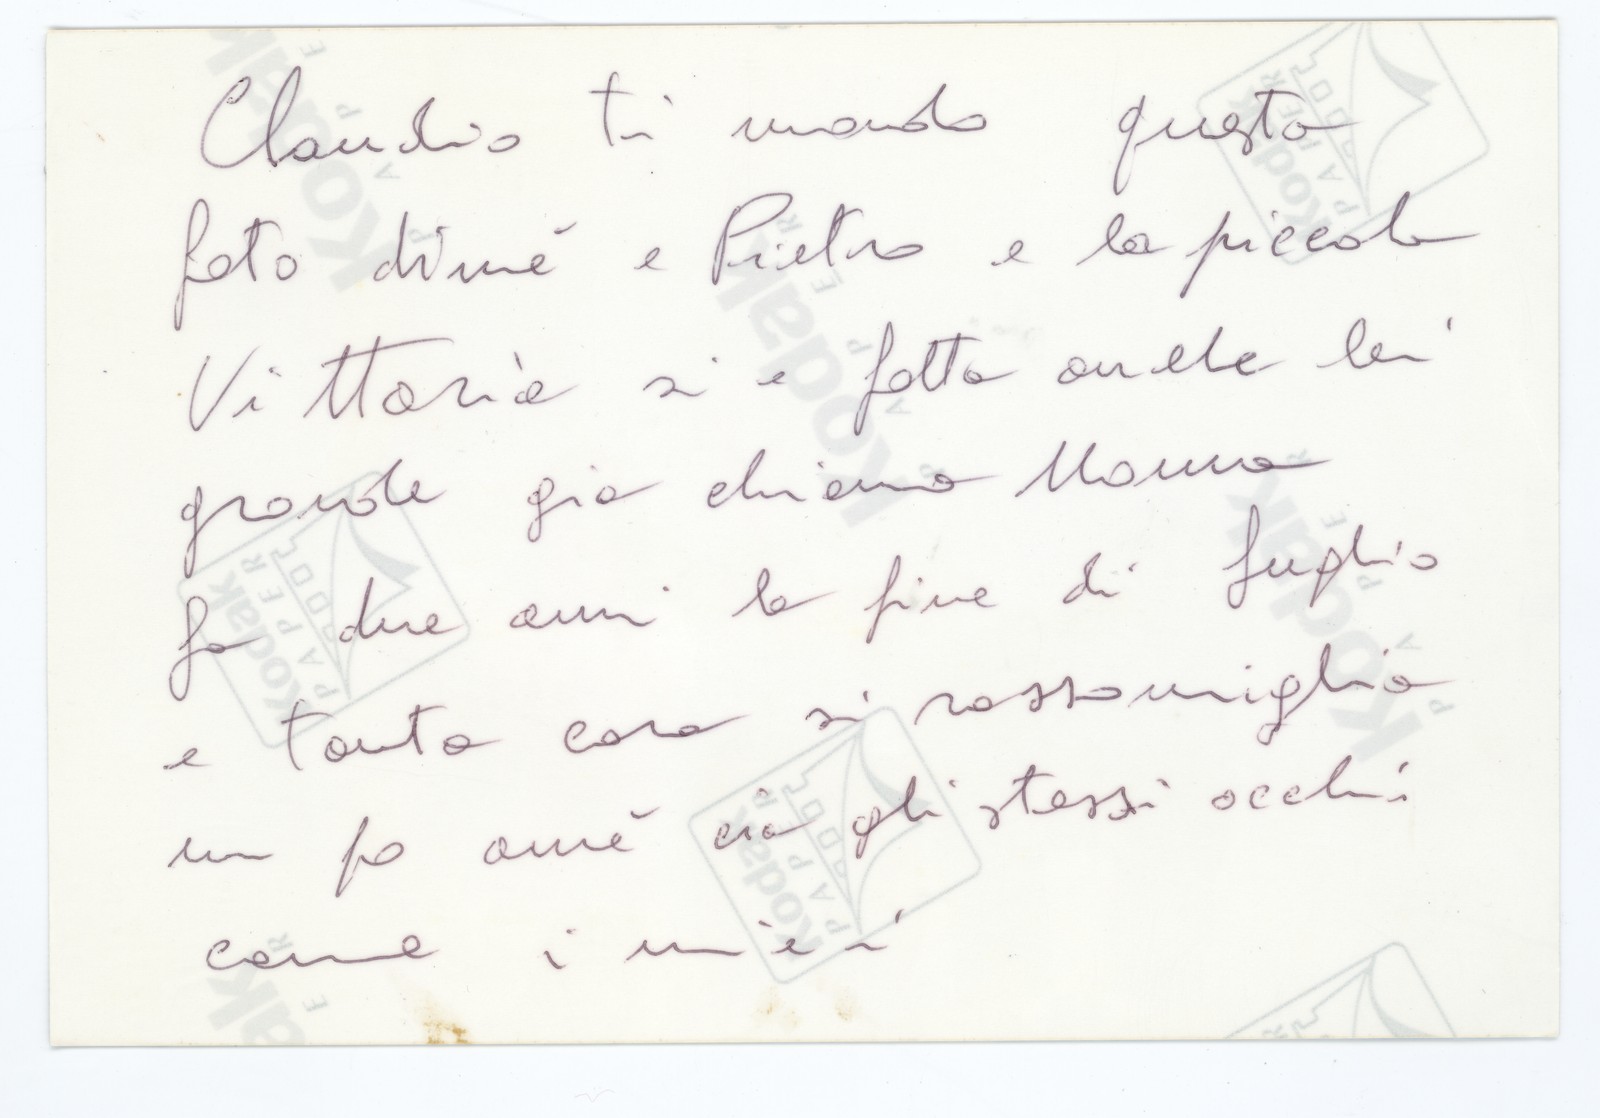 Claudio ti mando questa
foto dimé e Pietro e la piccola
Vittoria si e fatta anche lei
grande gia chiama Nonna
fa due anni la fine di Luglio
e tanta cara si rassomiglia
un po amé cià gli stessi occhi
come i miei
Kodak
PAPER
Kodak
PAPER
Kodak
PAPER